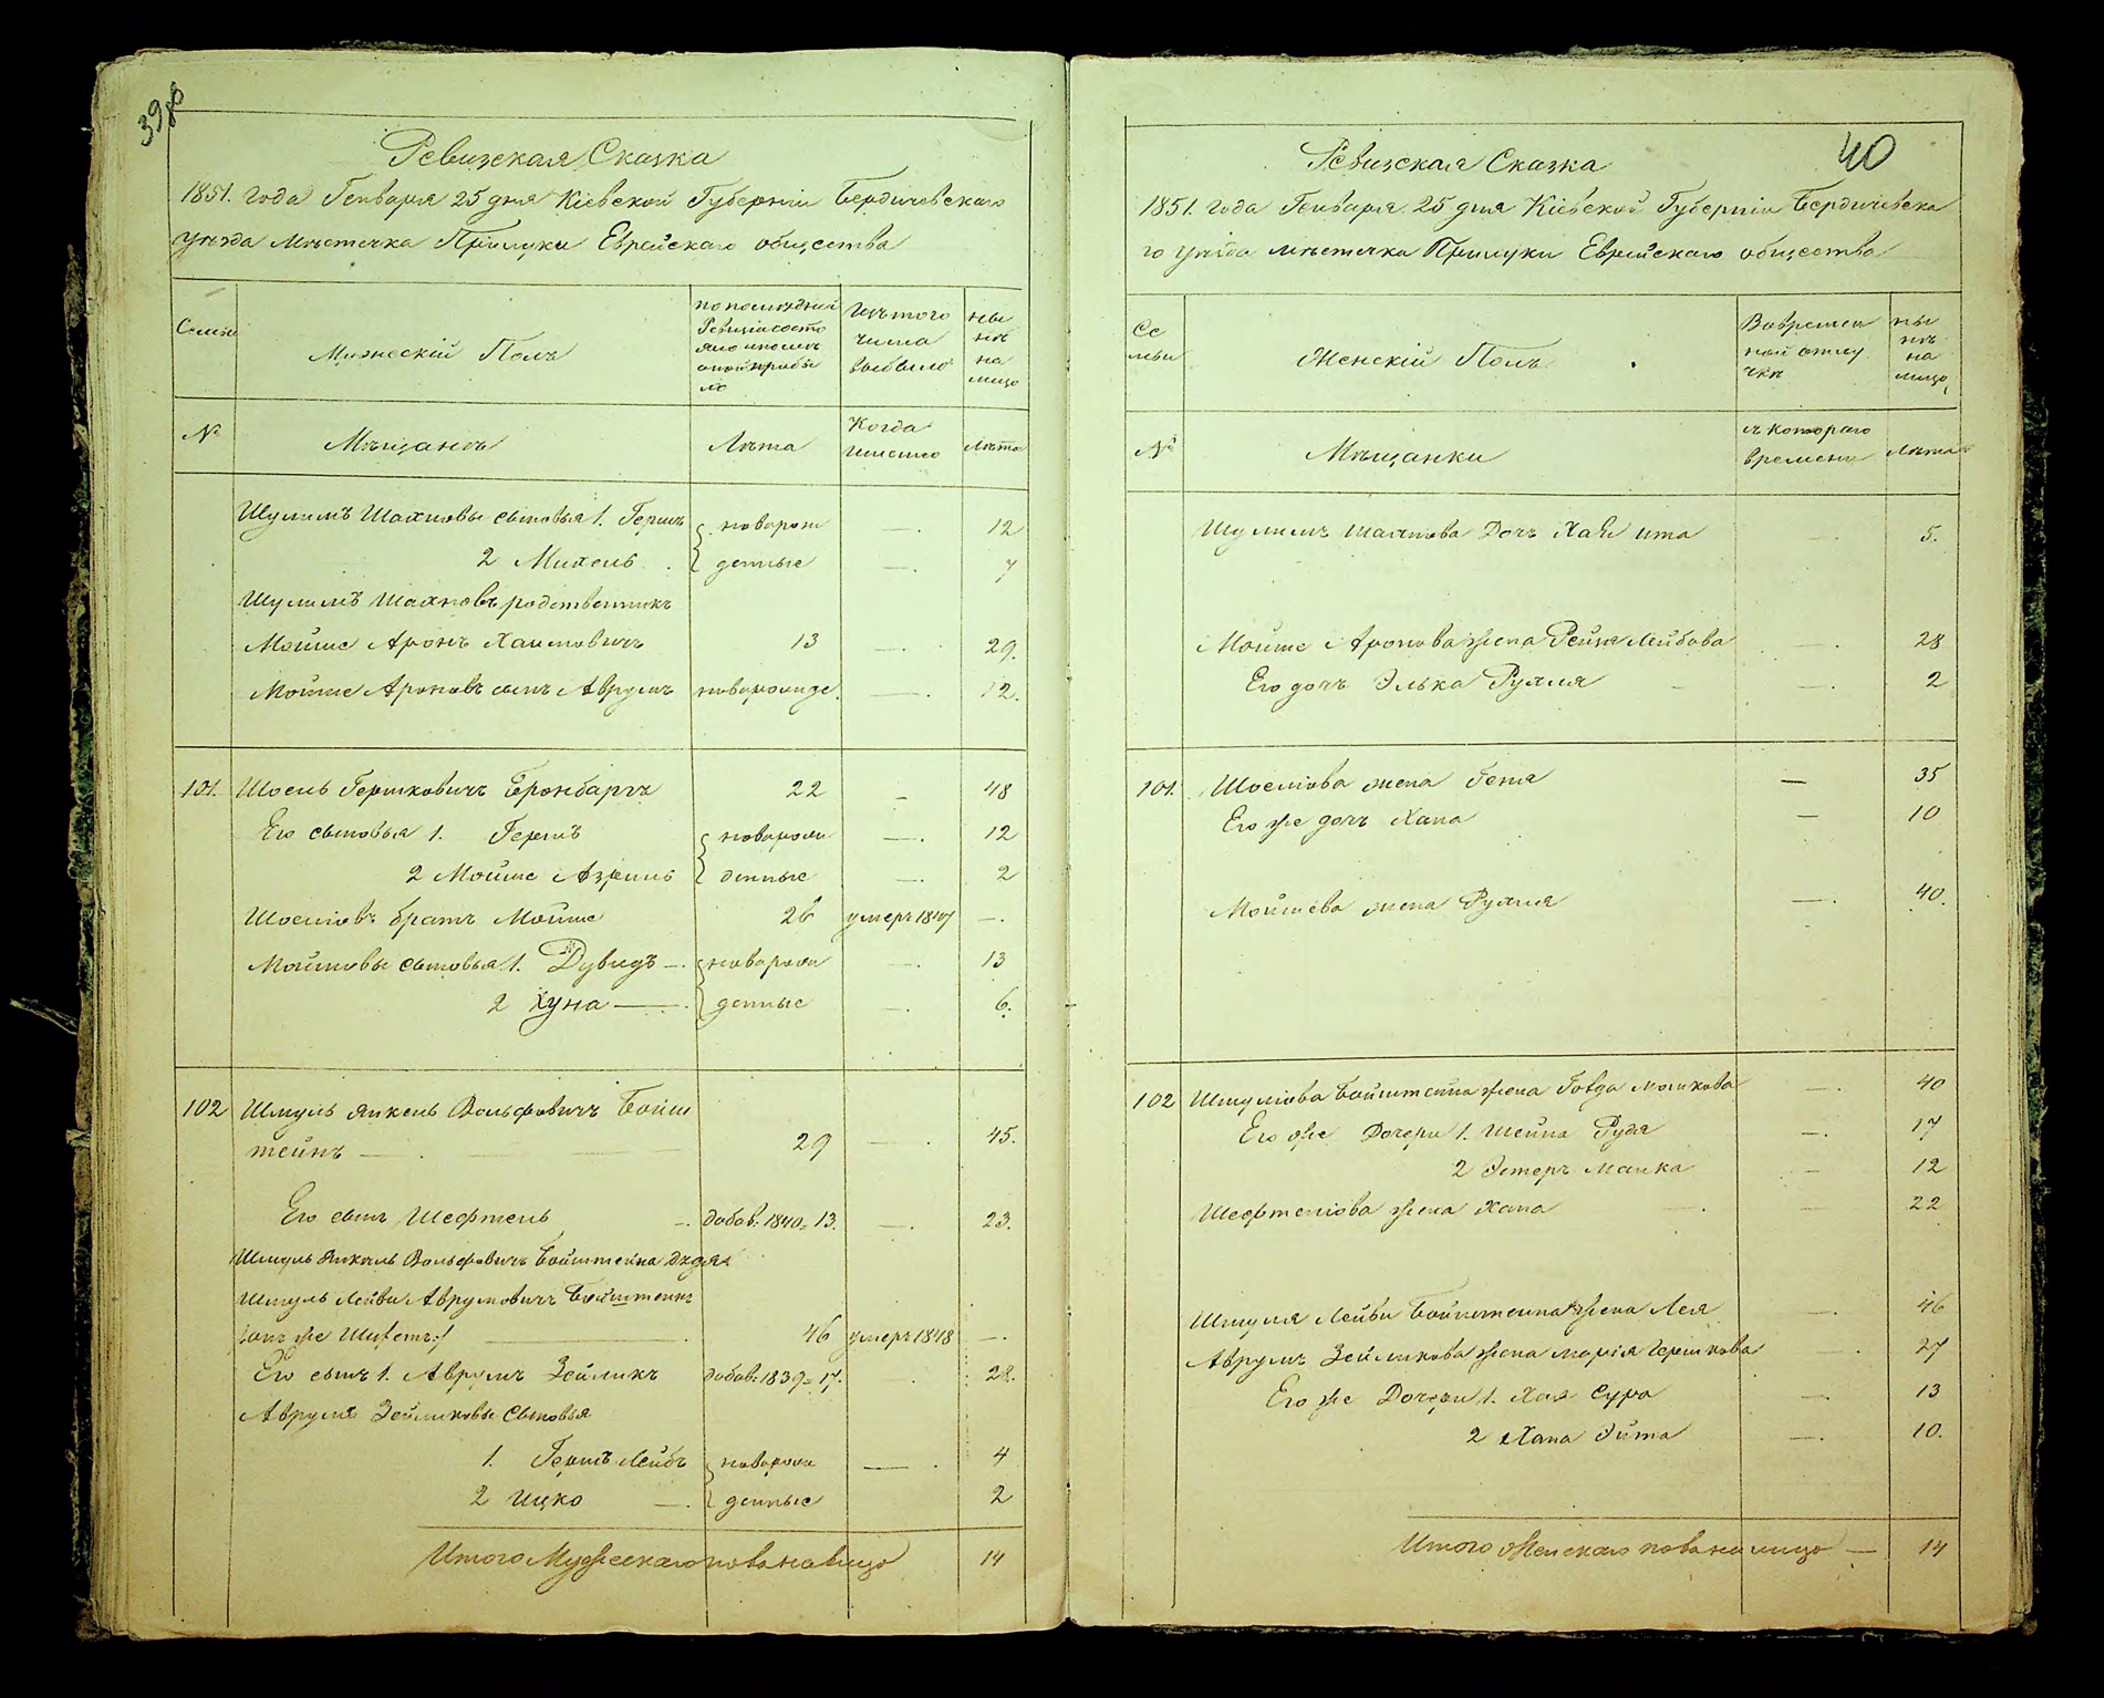 39об
Ревизская Сказка
1851. года Генваря 25 дня Кіевской Губерніи Бердичевскаго
уѣзда мѣстечка Прилуки Еврейскаго общества
Семьи
Мужескій Полъ
по последней
Ревизіи состо
яло и после
оной прибы
ло
Изъ того
числа
выбыло
ны
нѣ
на
лицо
№
Мѣщанъ
Лѣта
Когда
именно
Лѣта
Шулимъ Шахновы сыновья 1. Гершъ новорож — 12
2 Михель денные — 7
Шулимъ Шахновъ родственникъ
Мойше Аронъ Хаимовичъ 13 — 29.
Мойше Ароновъ сынъ Аврумъ новорожде. — 12.
101. Шоель Гершковичъ Бронбаргъ 22 – 48
Его сыновья 1. Гершъ новорож — 12
2 Мойше Азриль денные — 2
Шоелювъ братъ Мойше 26 умеръ 1847 —
Мойшовы сыновья 1. Дувидъ — новорож — 13
2 Хуна — денные — 6.
102 Шмуль Янкель Вольфовичъ Бойш
тейнъ — 29 — 45.
Его сынъ Шефтель — добав: 1840 = 13. — 23.
Шмуль Янкель Вольфовичъ Бойштейна дядя
Шмуль Лейви Аврумовичъ Бойштейнъ
/онъ же / — 46 умеръ 1848 —
Его сынъ 1. Аврумъ Зейликъ добав: 1839 = 17. 28.
Аврума Зейликовы Сыновья
1. Гершъ Лейбъ новорож — 4
2 Ицко — денные 2
Итого Мужескаго пола на лицо 14
40
Ревизская Сказка
1851. года Генваря 25 дня Кіевской Губерніи Бердичевска
го уѣзда мѣстечка Прилуки Еврейскаго общества
Се
мьи
Женскій Полъ
Во времен
ной отлу
чкѣ
ны
нѣ
на
лицо
№
Мѣщанки
съ котораго
времени
Лѣта
Шулимъ Шахнова Дочь Хая ита — 5.
Мойше Аронова жена Рейзя Лейбова — 28
Его дочь Элька Рухля — 2
101. Шоелюва жена Геня — 35
Его же дочь Хана — 10
Мойшева жена Рухля — 40.
102 Шмулюва Бойштейна жена Говда Мошкова — 40
Его же Дочери 1. Шейна Рудя — 17
2 Эстеръ Малка — 12
Шефтелюва жена Хана — 22
Шмуля Лейви Бойштейна жена Лея — 46
Аврумъ Зейликова жена Марія Гершкова — 27
Его же Дочери 1. Хая Сура — 13
2 Хана Эйта — 10.
Итого Женскаго пола на лицо — 14